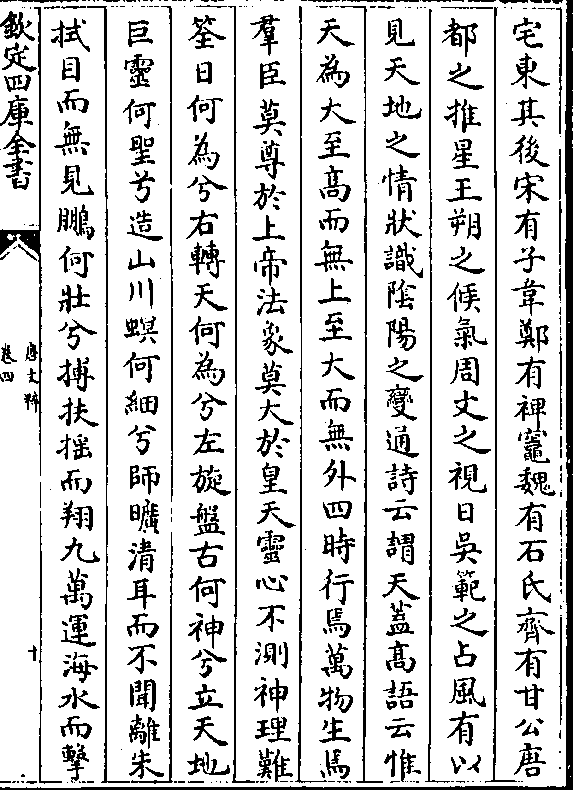 宅東其後宋有子韋鄭有禆竈魏有石氏齊有甘公唐
都之推星王朔之候氣周文之視日吳範之占風有以
見天地之情狀識隂陽之變通詩云謂天蓋髙語云惟
天為大至髙而無上至大而無外四時行焉萬物生焉
羣臣莫尊於上帝法象莫大於皇天靈心不測神理難
筌日何為兮右轉天何為兮左旋盤古何神兮立天地
巨靈何聖兮造山川螟何細兮師曠清耳而不聞離朱
拭目而無見鵬何壯兮搏扶揺而翔九萬運海水而擊
欽定四庫全書
唐文粹
卷四
十